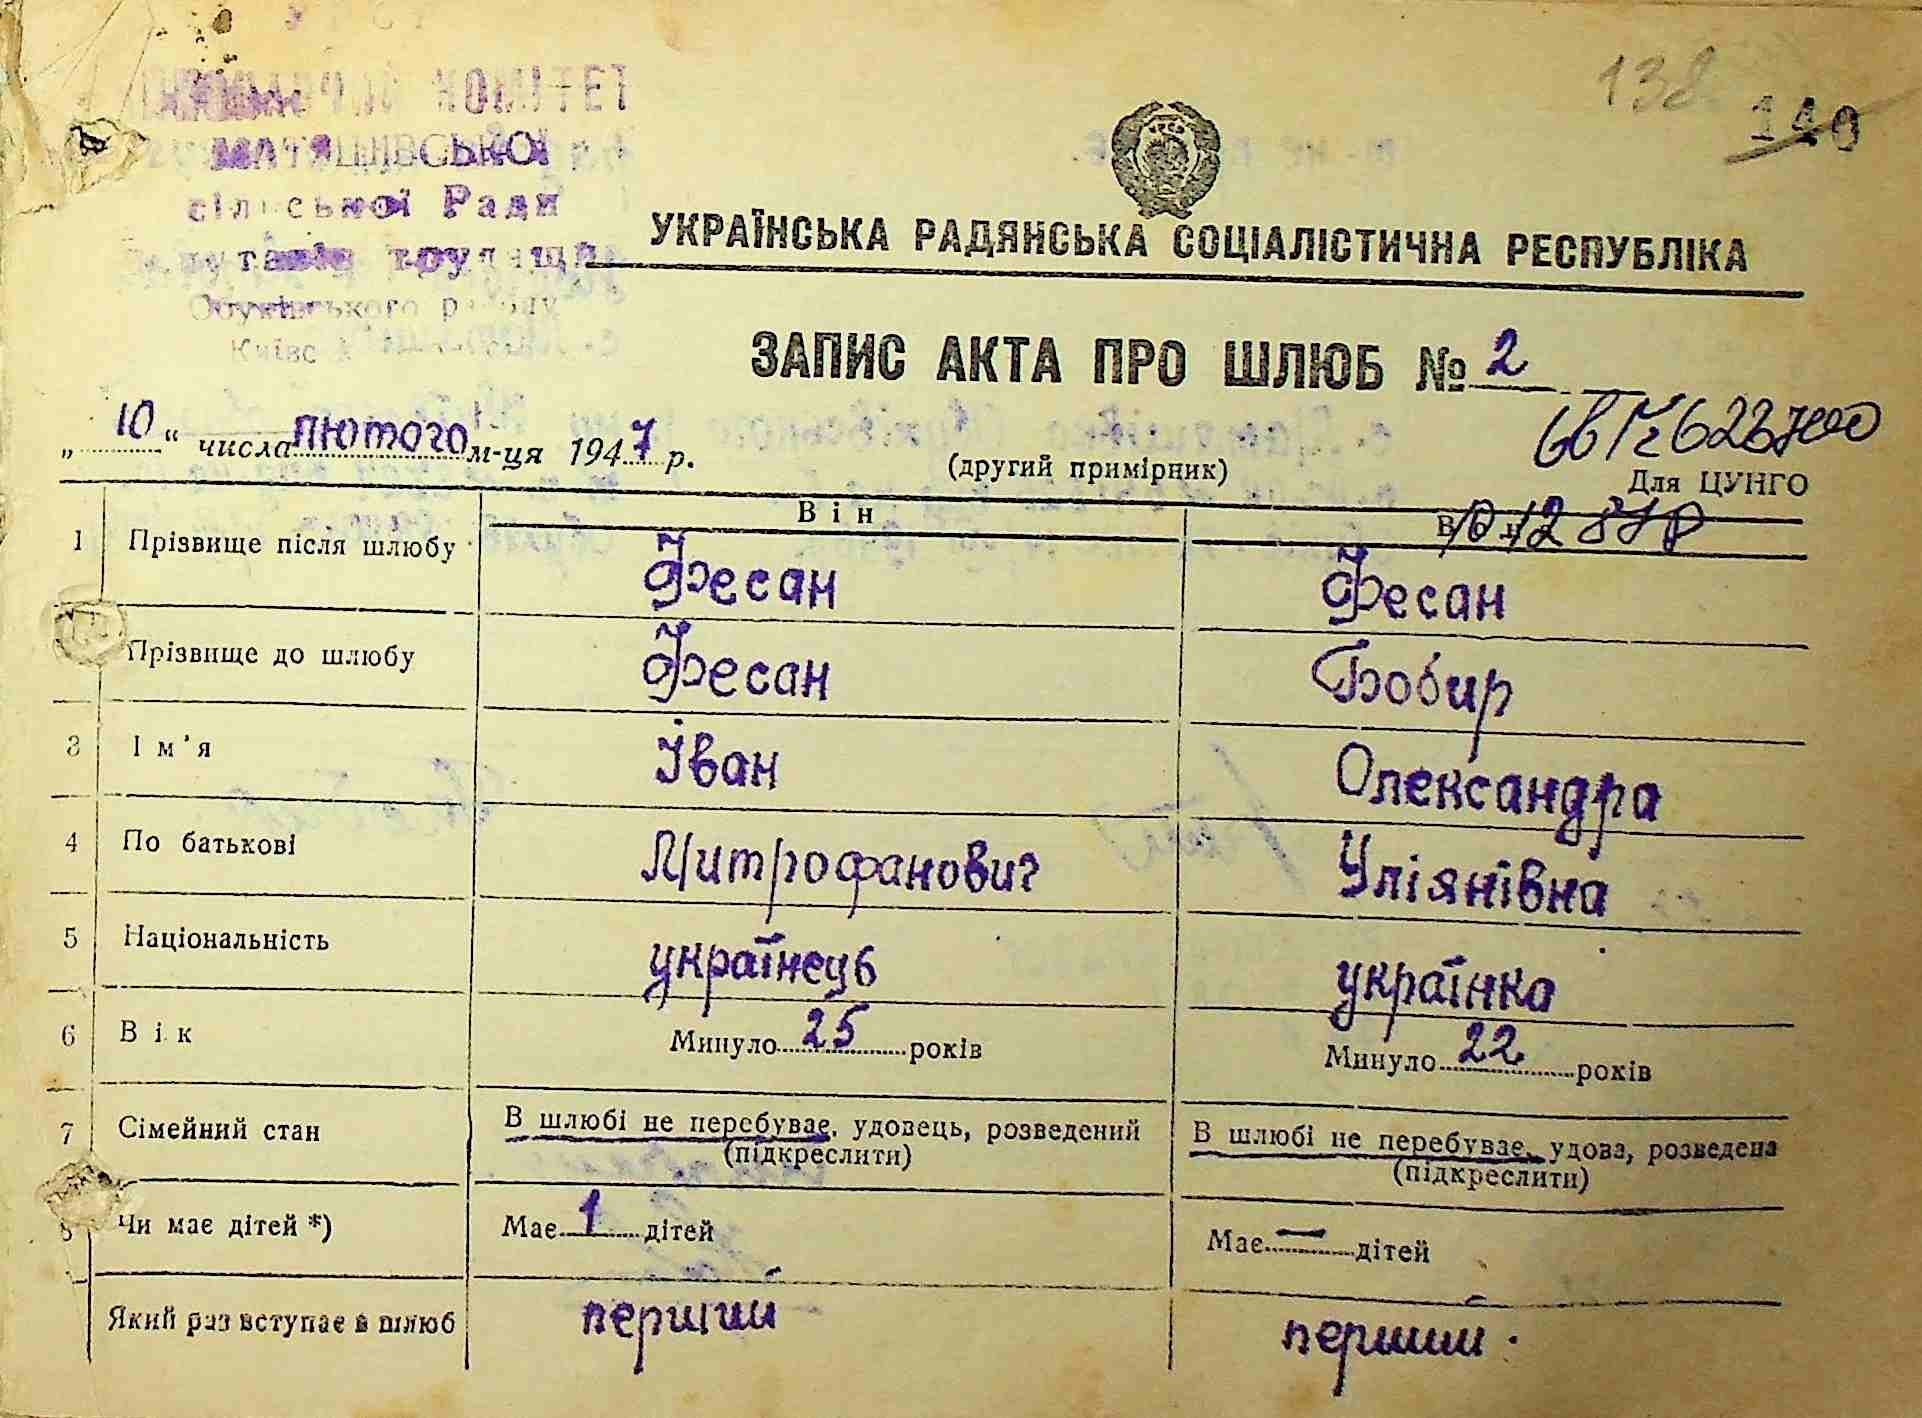 138
140
КОМІТЕТ
сільської Ради
УКРАЇНСЬКА РАДЯНСЬКА СОЦІАЛІСТИЧНА РЕСПУБЛІКА
ЗАПИС АКТА ПРО ШЛЮБ № 2
„10“ числа лютого м-ця 1947 р.
(другий примірник)
Для ЦУНГО
Він
1 Прізвище після шлюбу Фесан Фесан
Прізвище до шлюбу Фесан Бобир
3 Ім'я Іван Олександра
4 По батькові Митрофанович Уліянівна
5 Національність українець українка
6 Вік Минуло 25 років Минуло 22 років
7 Сімейний стан В шлюбі не перебуває, удовець, розведений В шлюбі не перебуває, удова, розведена
(підкреслити) (підкреслити)
8 Чи має дітей *) Має 1 дітей Має — дітей
Який раз вступає в шлюб перший перший.